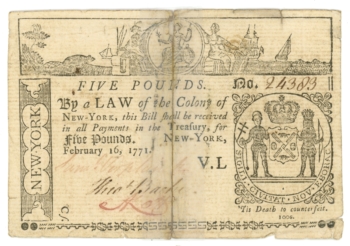 FIVE POUNDS.
No. 24383
By a LAW of the Colony of
NEW-YORK, this Bill shall be received
in all Payments in the Treasury, for
Five Pounds. NEW-YORK,
February 16, 1771.
V.L
NEW-YORK
'Tis Death to counterfeit.